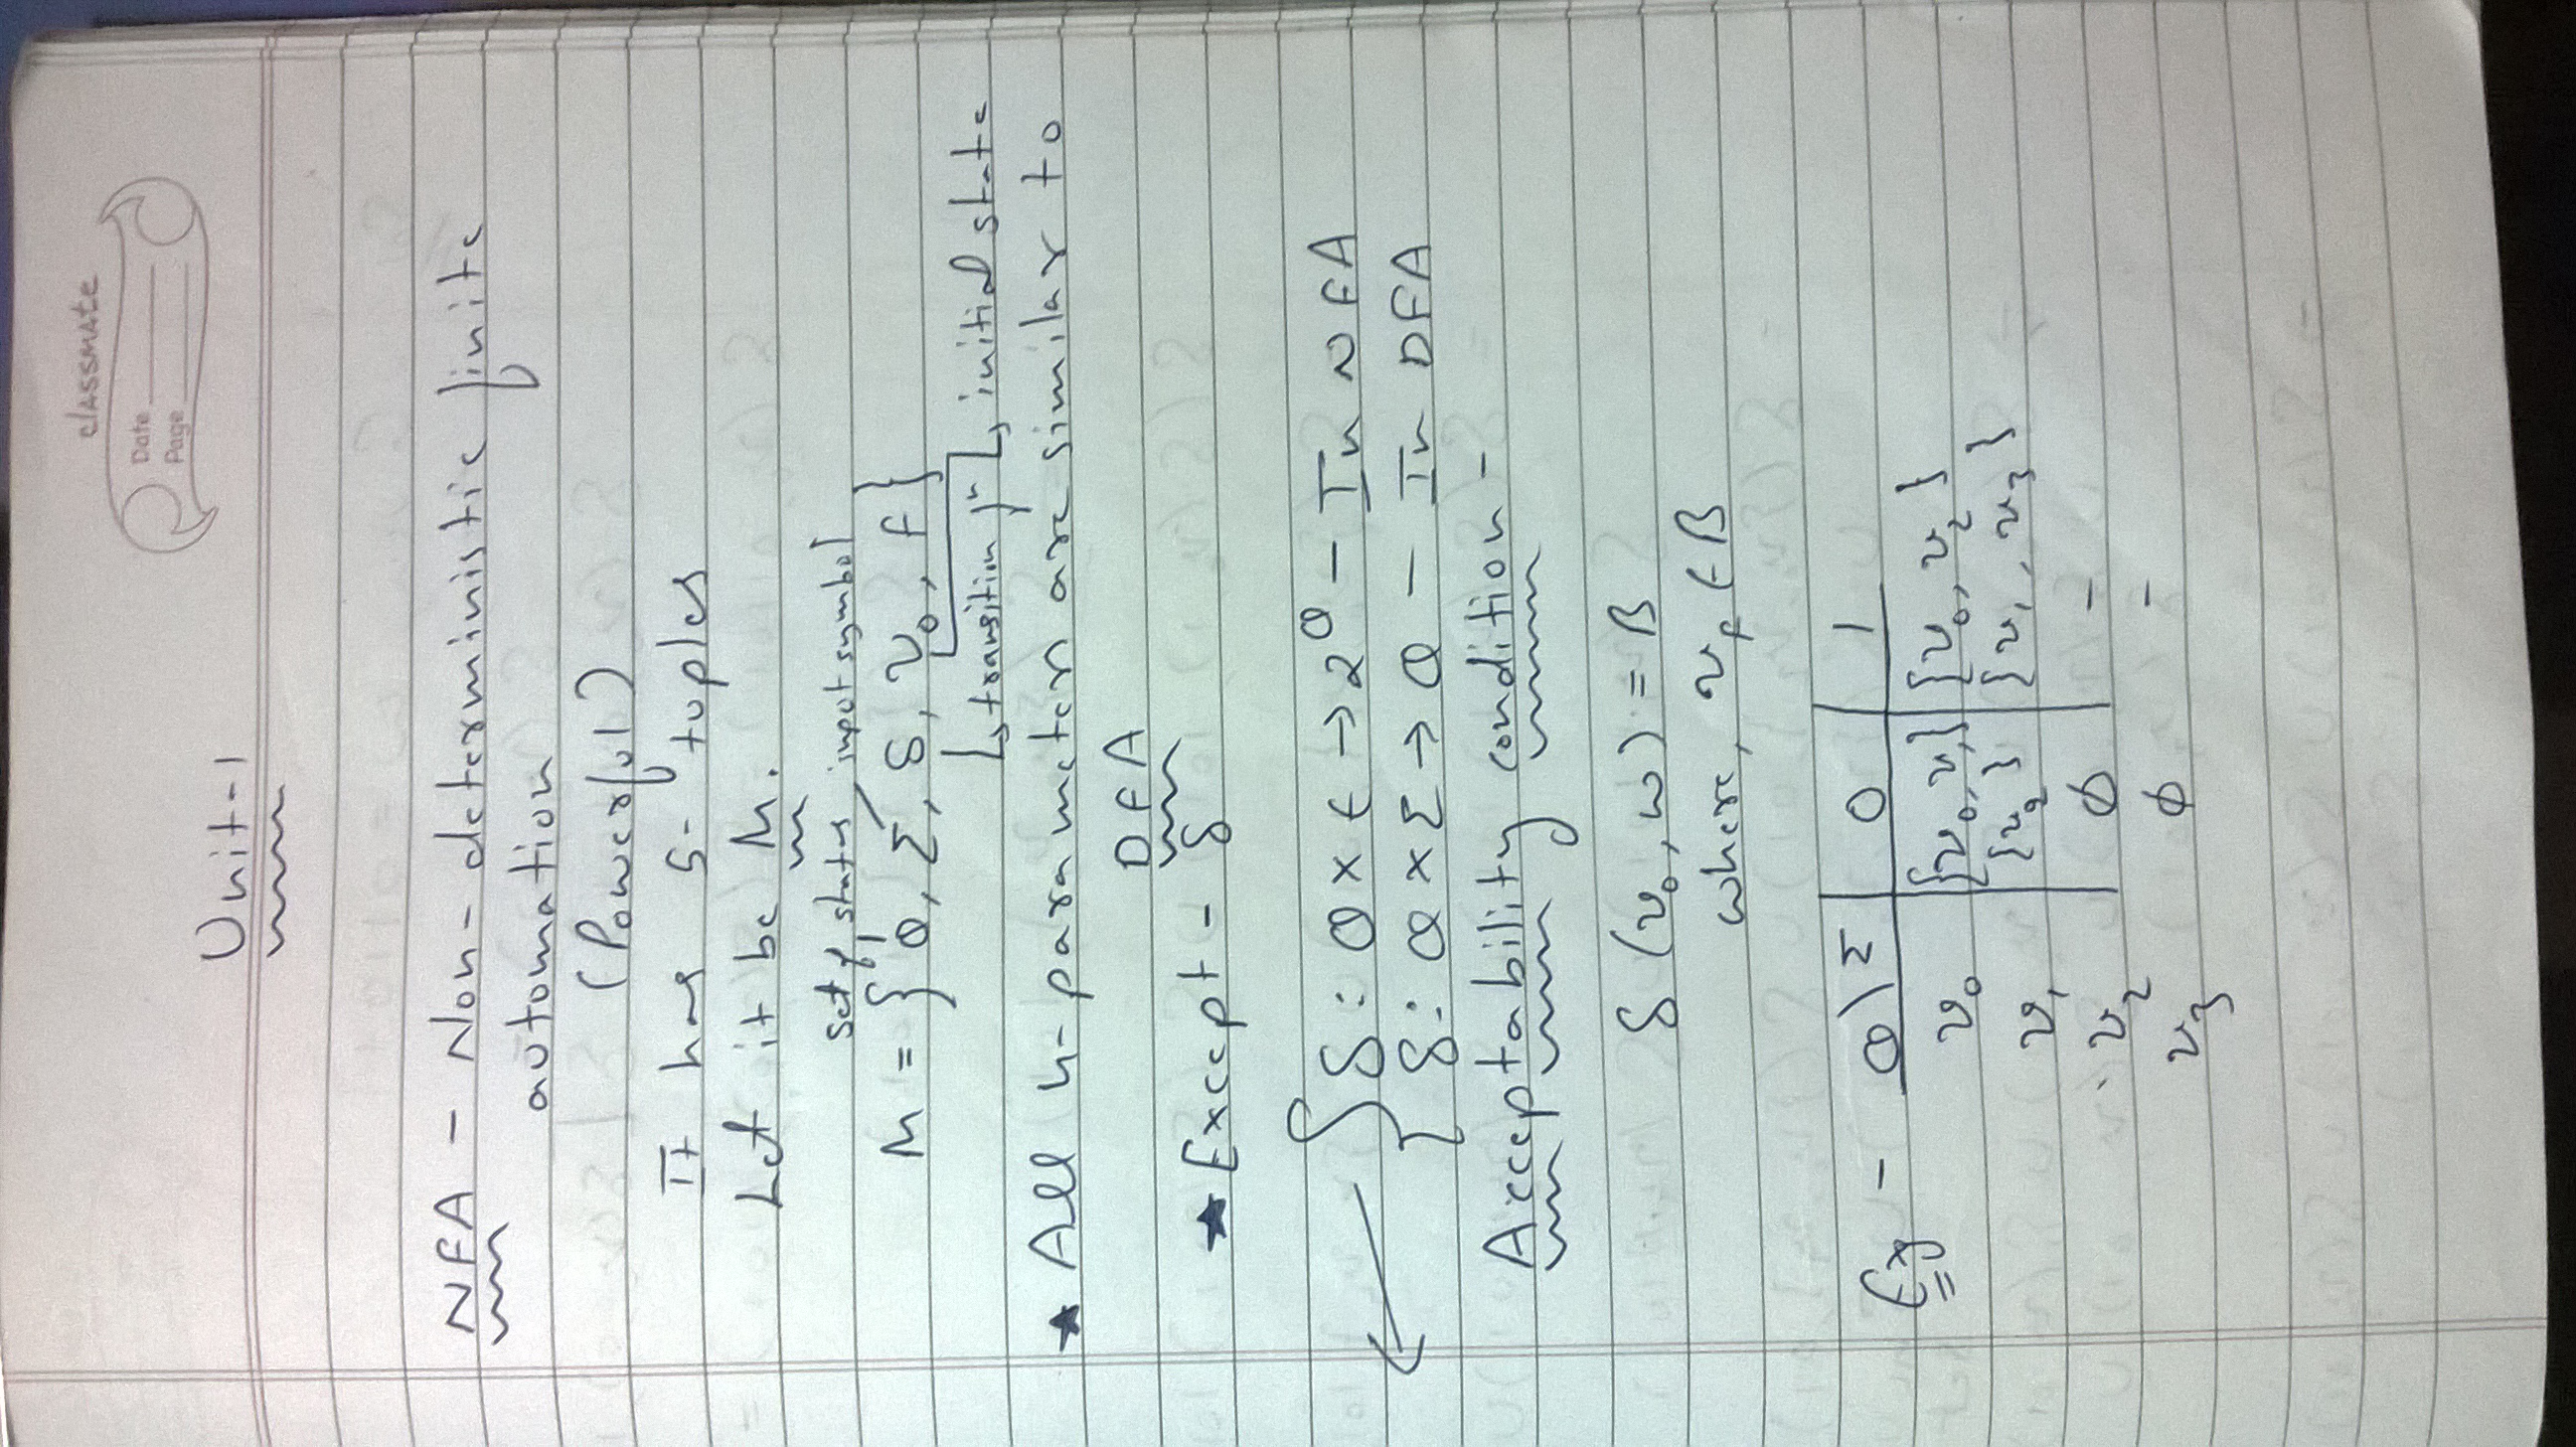 classmate
Date
Page
Unit-1
NFA - Non-deterministic finite
automation
(Powerful)
It has 5-tuples
Let it be M.
set of states input symbol
M = { Q, Σ, δ, v₀, F }
↳ transition fⁿ ↳ initial state
★ All 4-parameters are similar to
DFA
★ Except - δ
δ : Q × Σ → 2^Q - In NFA
δ : Q × Σ → Q - In DFA
Acceptability condition -
δ (v₀, w) = B
where, v_F ∈ B
Eg - Q\Σ | 0 | 1
v₀ | {v₀, v₁} | {v₀, v₂}
v₁ | {v₂} | {v₁, v₃}
v₂ | ϕ | -
v₃ | ϕ | -